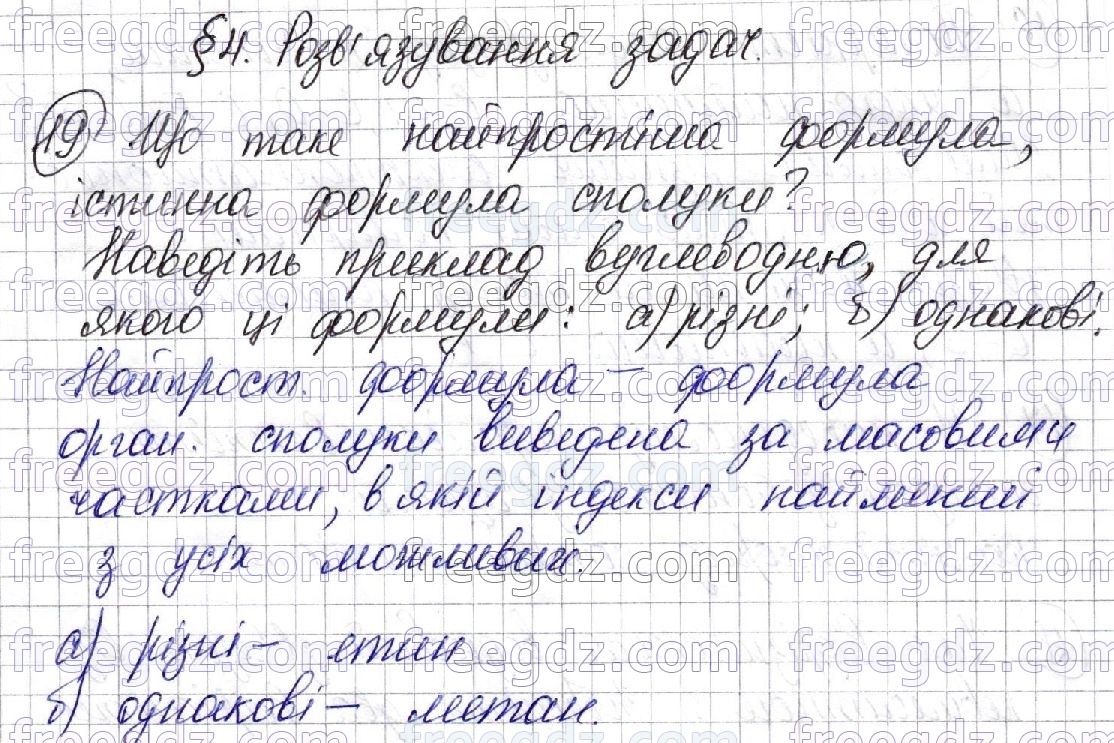 §4. Розв'язування задач.
19 Що таке найпростіша формула,
істинна формула сполуки?
Наведіть приклад вуглеводню, для
якого ці формули: а) різні; б) однакові.
Найпрост. формула – формула
орган. сполуки виведена за масовими
частками, в якій індекси найменші
з усіх можливих.
а) різні – етан
б) однакові – метан.
freegdz.com